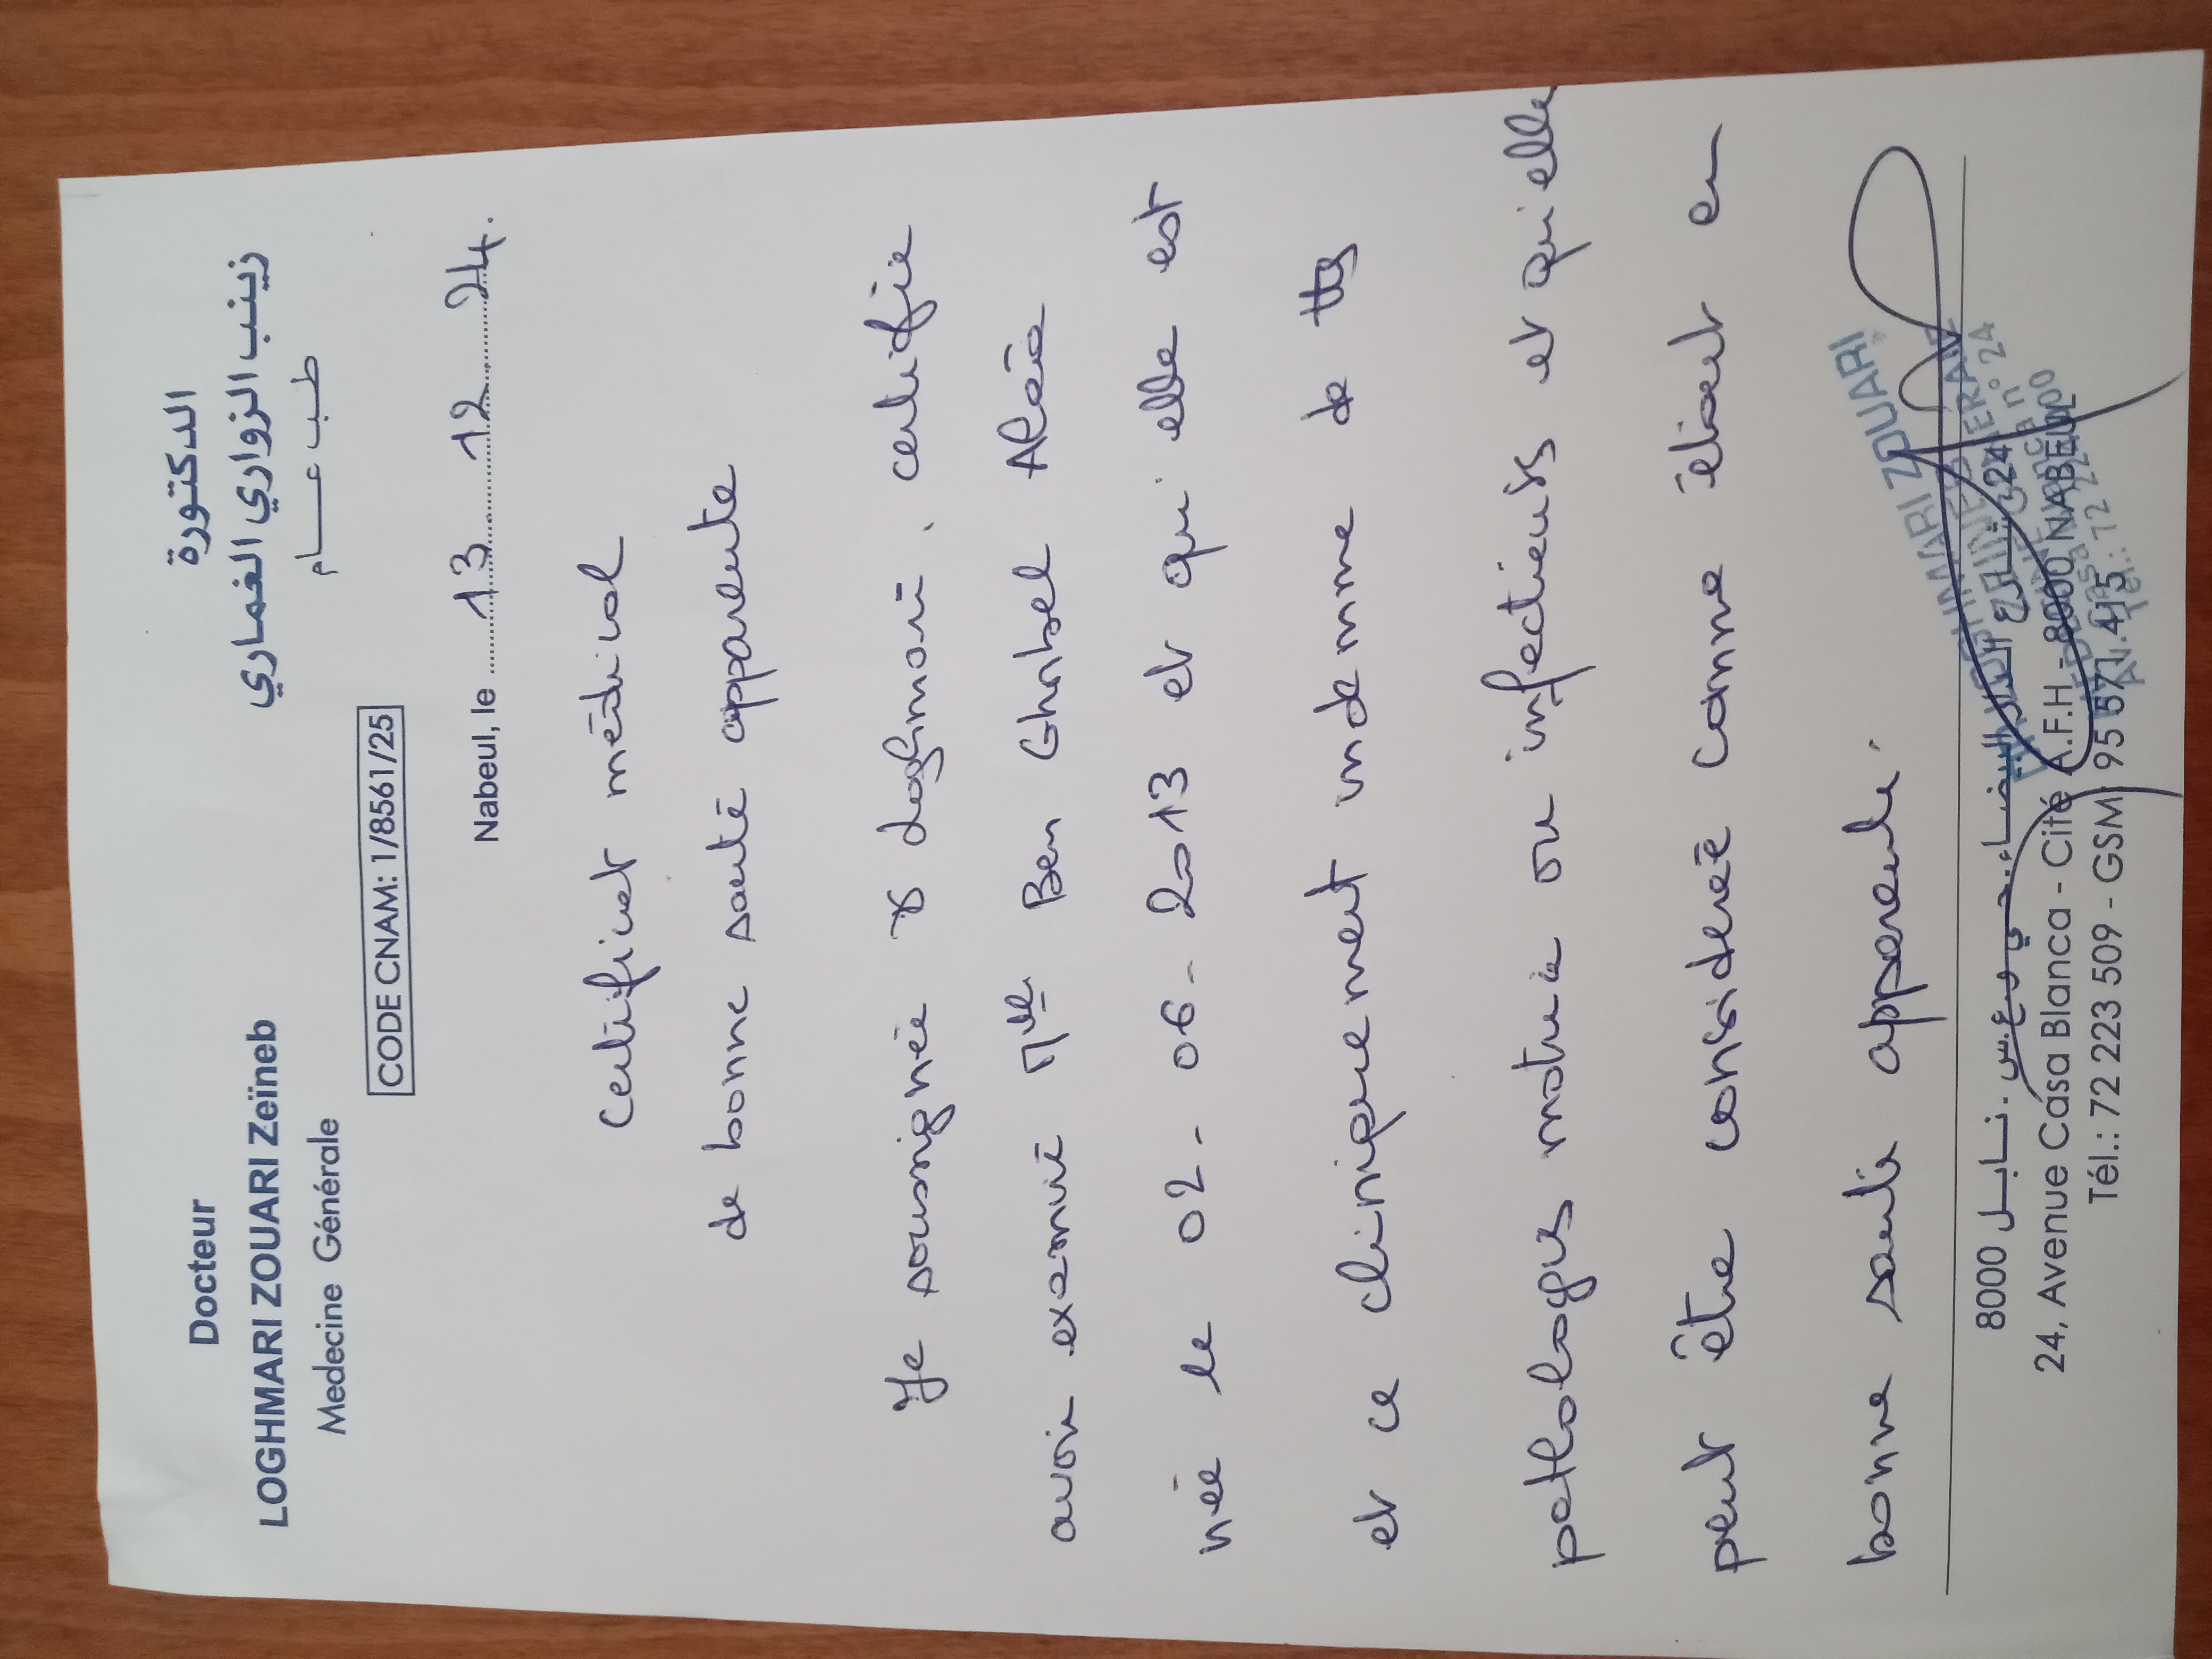 Docteur
LOGHMARI ZOUARI Zeïneb
Medecine Générale
الدكتورة
زينب الزواري الغماري
طب عام
CODE CNAM: 1/8561/25
Nabeul, le 13 12 24.
Certificat médical
de bonne santé apparente
Je soussignée Dr Loghmari, certifie
avoir examiné Mlle Ben Ghorbel
née le 02-06-2013 et qui elle est
et ce cliniquement indemne de ttes
pathologies motrice ou infectieuses et qui elle
peut être considereé comme étant en
bonne santé apparente.
24 شارع الدار البيضاء، حي و.ع.س. نابل 8000
24, Avenue Casa Blanca - Cité A.F.H - 8000 NABEUL
Tél.: 72 223 509 - GSM: 95 571 445
LOGHMARI ZOUARI